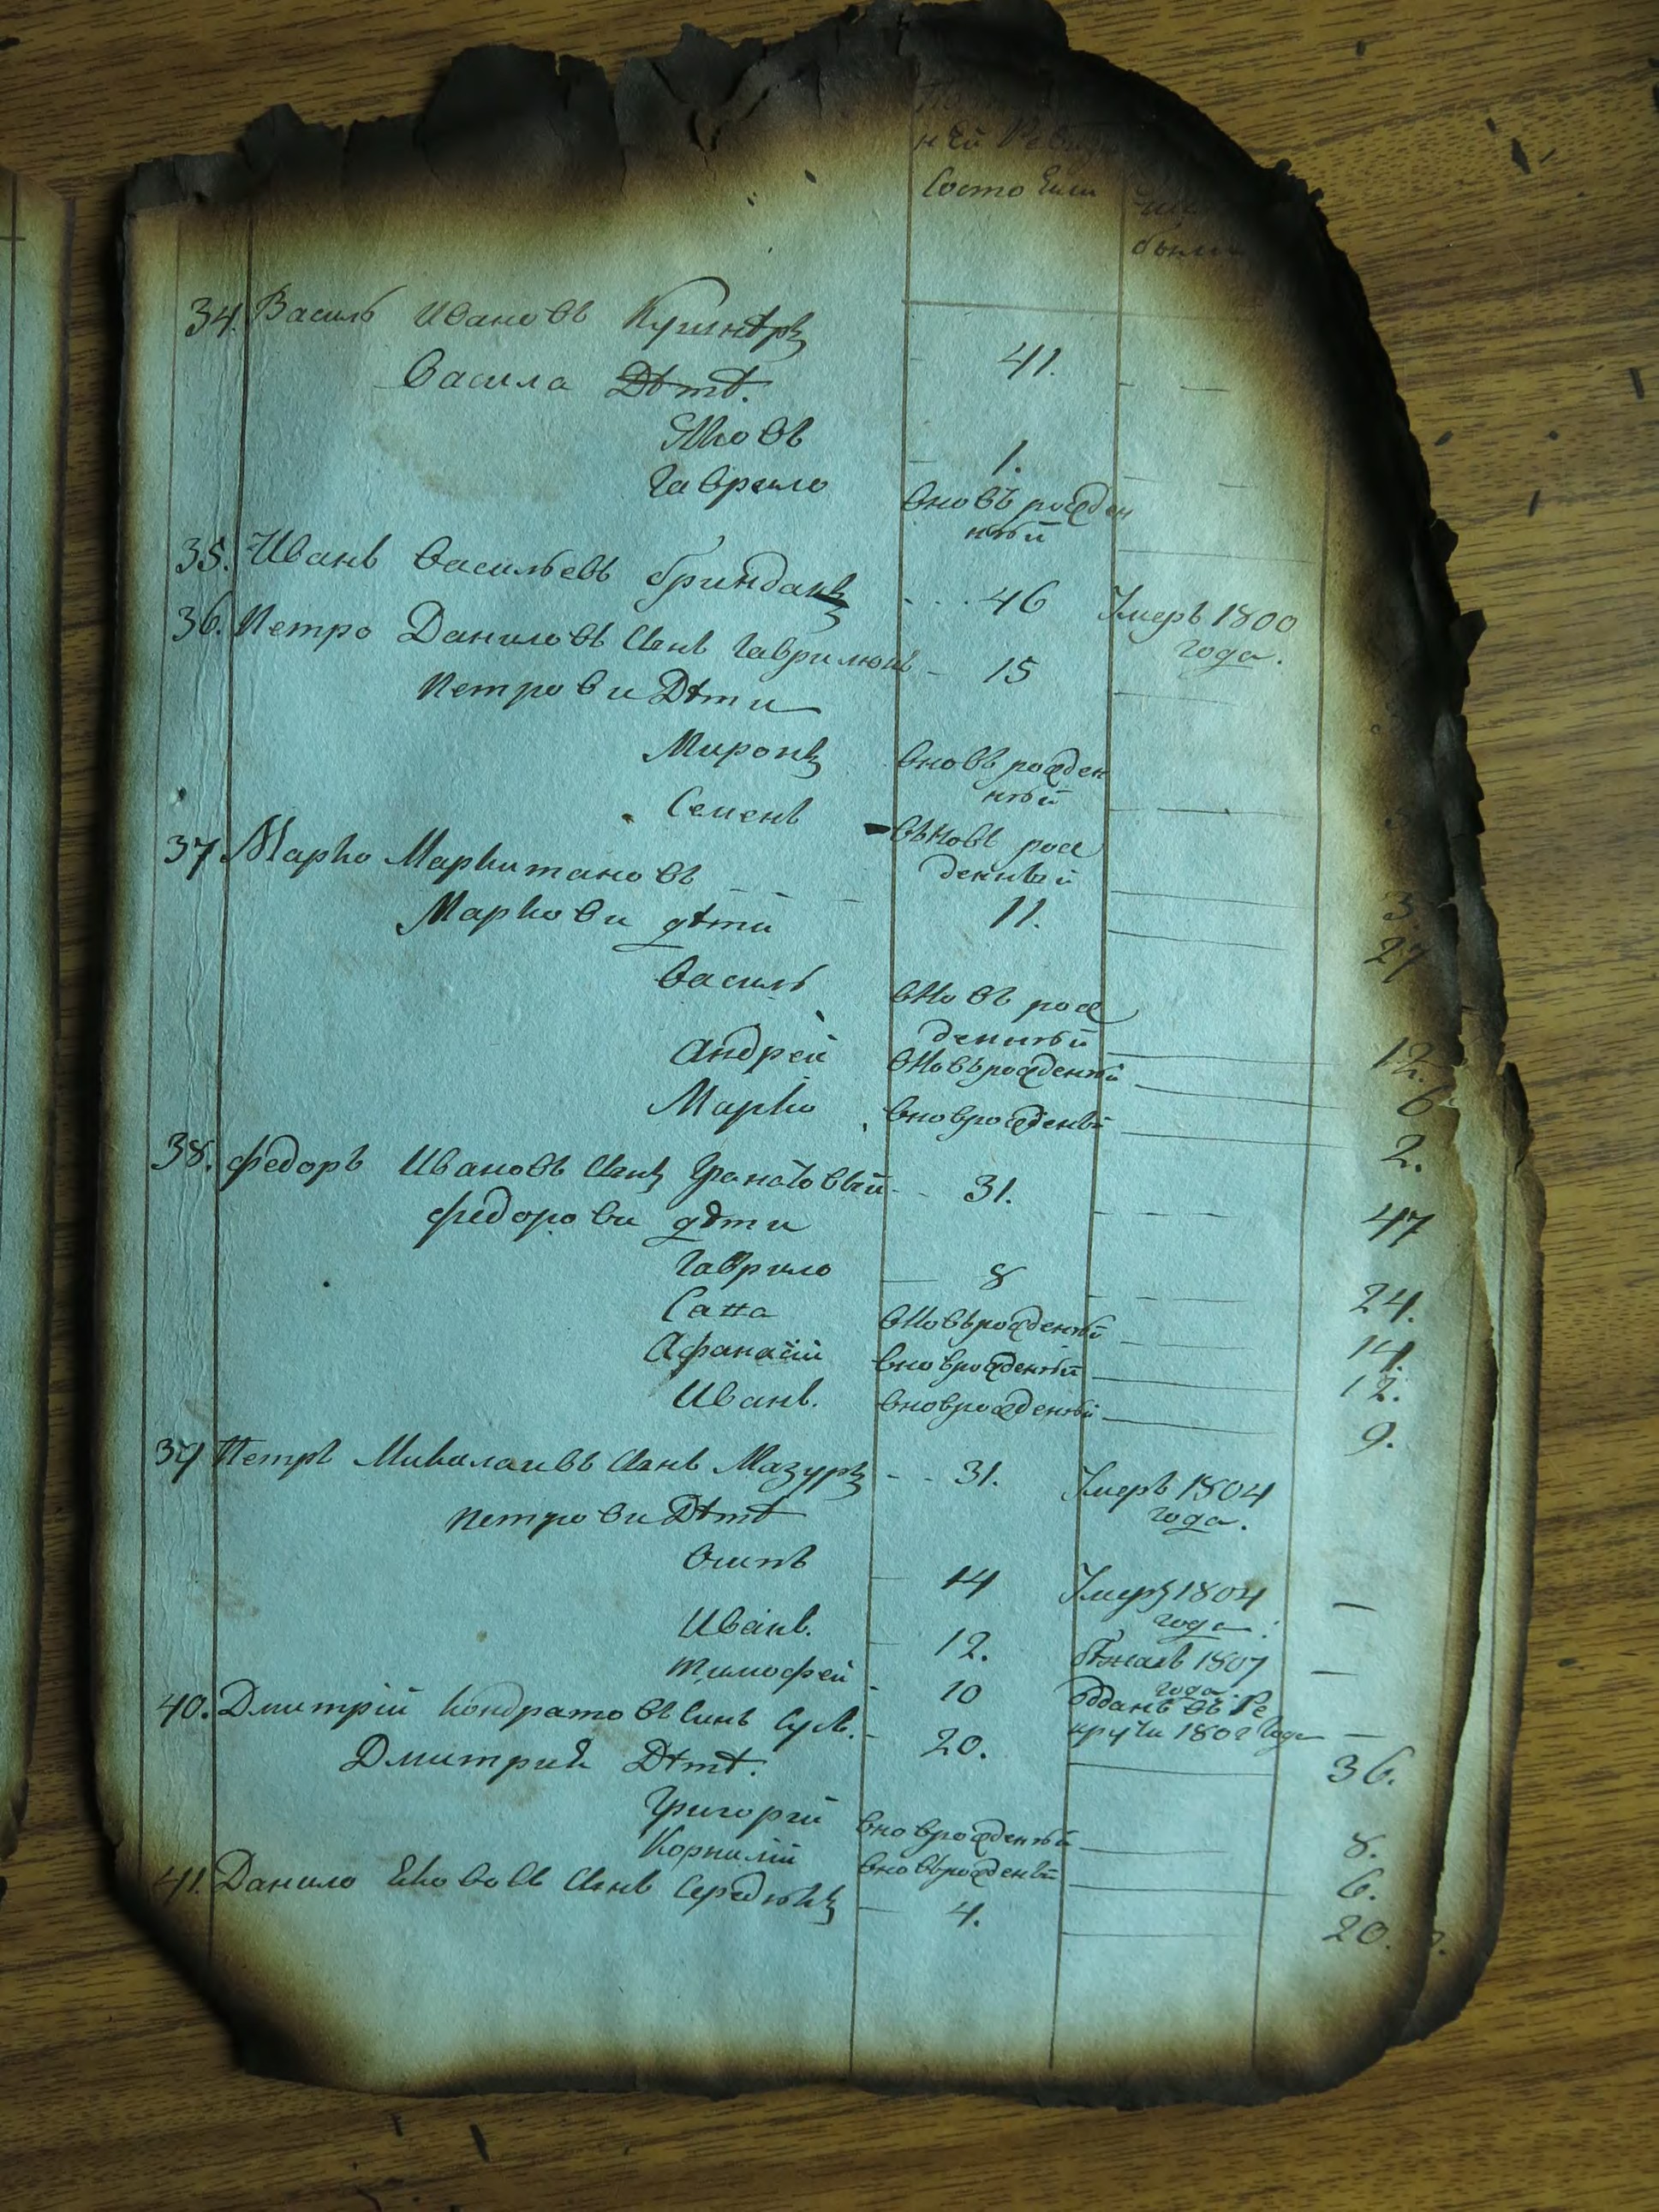 ней Реви
Состоели
были
34. Василь Ивановъ Кушнѣръ 41.
Васила Дѣтѣ.
Яковъ 1.
Гаврило вновъ рожден
ный
35. Иванъ Васильевъ бринданъ 46 Умеръ 1800
года.
36. Петро Даниловъ Сынъ Гаврилюкъ 15
Петрови Дѣти
Миронъ вновъ рожден
ный
Семенъ вьновъ рож
денный
37. Марко Маркитановъ 11. 27
Маркови дѣти
Василь вновъ рож
денный 12.
Андрей вновърожденый 6
Марко вноврожденый 2.
38. Федоръ Ивановъ Сынъ 31. 47
Федорови дѣти
Гаврило 8 24.
Сава вновърожденый 14.
Афанасий вноврожденый 12.
Иванъ. вноврожденый 9.
39 Петръ Миколаивъ Сынъ Мазуръ 31. Умеръ 1804
года.
Петрови Дѣтѣ
Осипъ 14 Умеръ 1804 —
года.
Иванъ. 12. бѣжалъ 1807 —
года.
Тимофей 10 Отданъ въ Ре
круты 1802 Года —
40. Дмитрій Кондратовъ Синъ 20. 36.
Дмитрия Дѣтѣ.
Григорій вноврожденый 8.
Корнилій вновърожденый 6.
41. Данило Якововъ Сынъ Середюкъ 4. 20.